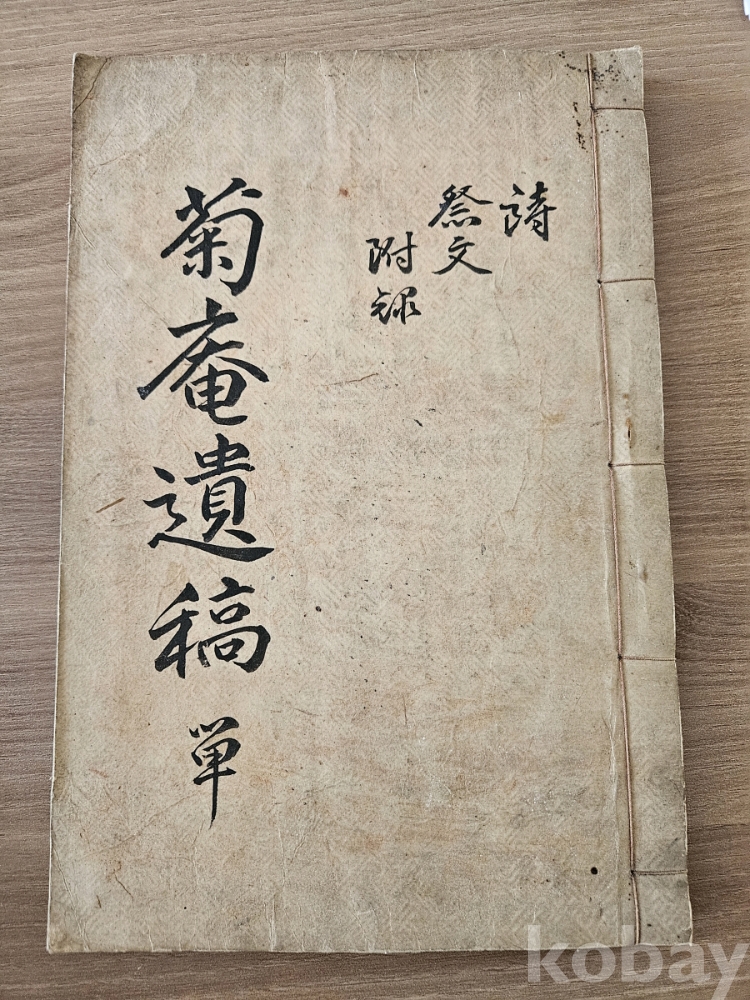 詩
祭文
附錄
菊庵遺稿 單
kobay